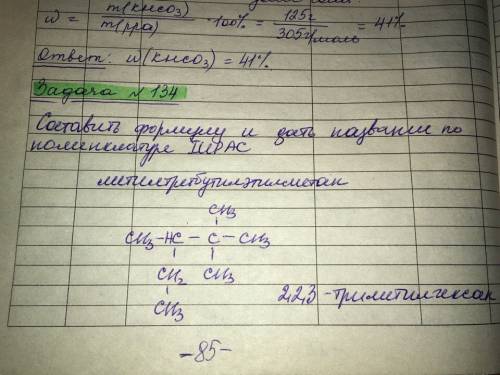 ω = m(KHCO3) / m(рра) · 100% = 125г / 305г/моль = 41%
Ответ: ω(KHCO3) = 41%
Задача №134
Составить формулу и дать название по
номенклатуре IUPAC
метилтретбутилэтилметан
CH3
CH3-HC - C - CH3
CH2 CH3
CH3
2,2,3-триметилгексан
-85-